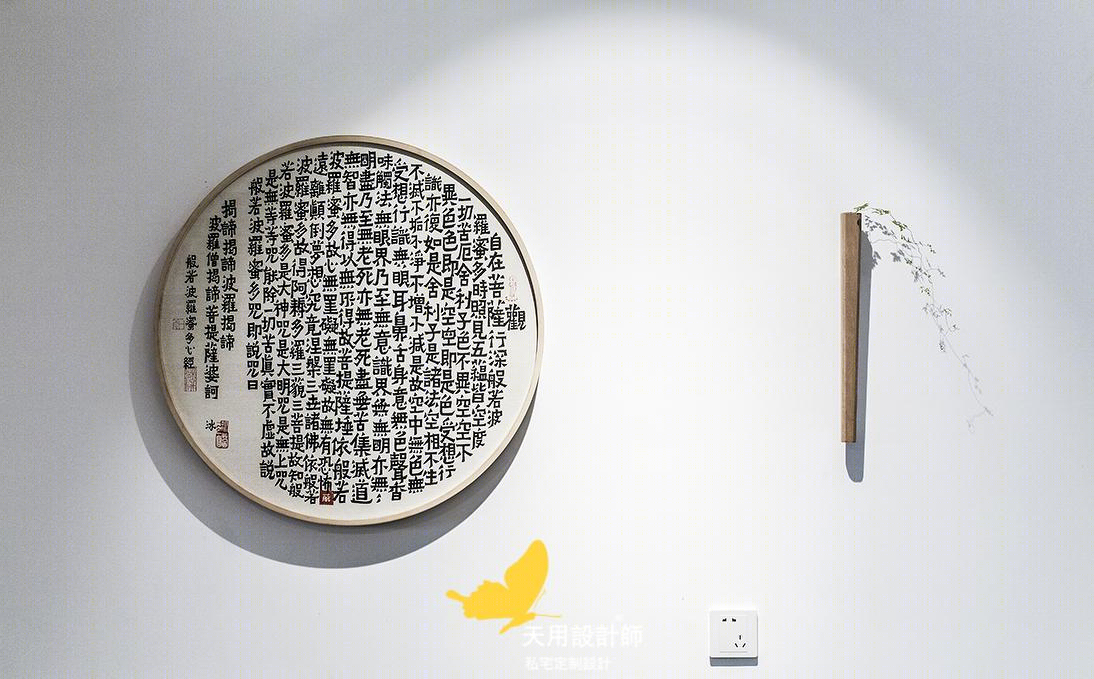 觀
自在菩薩行深般若波
羅蜜多時照見五蘊皆空度
一切苦厄舍利子色不異空空不
異色色即是空空即是色受想行
識亦復如是舍利子是諸法空相不生
不滅不垢不淨不增不減是故空中無色無
受想行識無眼耳鼻舌身意無色聲香
味觸法無眼界乃至無意識界無無明亦無
明盡乃至無老死亦無老死盡無苦集滅道
無智亦無得以無所得故菩提薩埵依般若
波羅蜜多故心無罣礙無罣礙故無有恐怖
遠離顛倒夢想究竟涅槃三世諸佛依般若
波羅蜜多故得阿耨多羅三藐三菩提故知般
若波羅蜜多是大神咒是大明咒是無上咒
是無等等咒能除一切苦眞實不虛故說
般若波羅蜜多咒即說咒曰
揭諦揭諦波羅揭諦
波羅僧揭諦菩提薩婆訶
冰
般若波羅蜜多心經
天用設計師
私宅定制設計